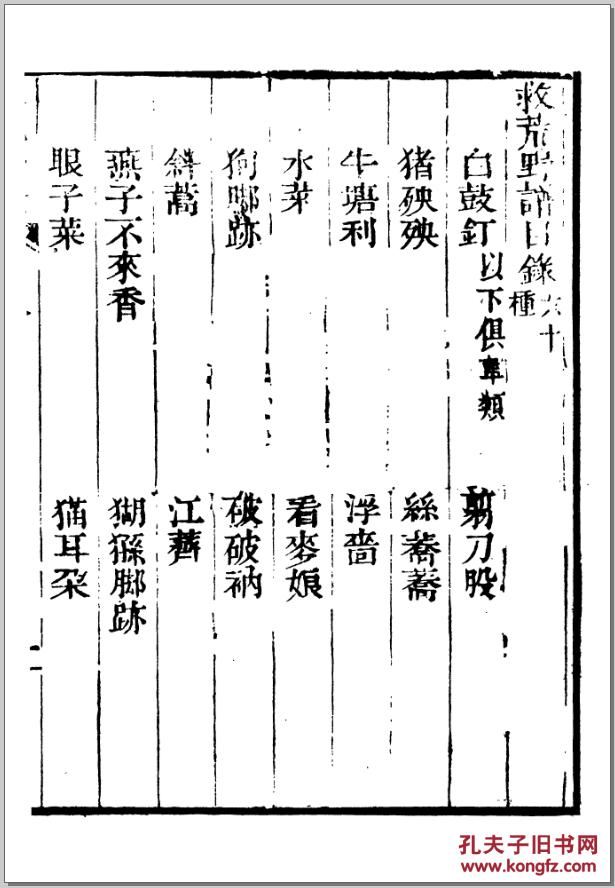 救荒野譜目錄六十種
白鼓釘以下俱草類 剪刀股
猪殃殃 絲蕎蕎
牛塘利 浮薔
水菜 看麥娘
狗脚跡 破破衲
斜蒿 江薺
燕子不來香 猢猻脚跡
眼子菜 猫耳朶
孔夫子旧书网
www.kongfz.com